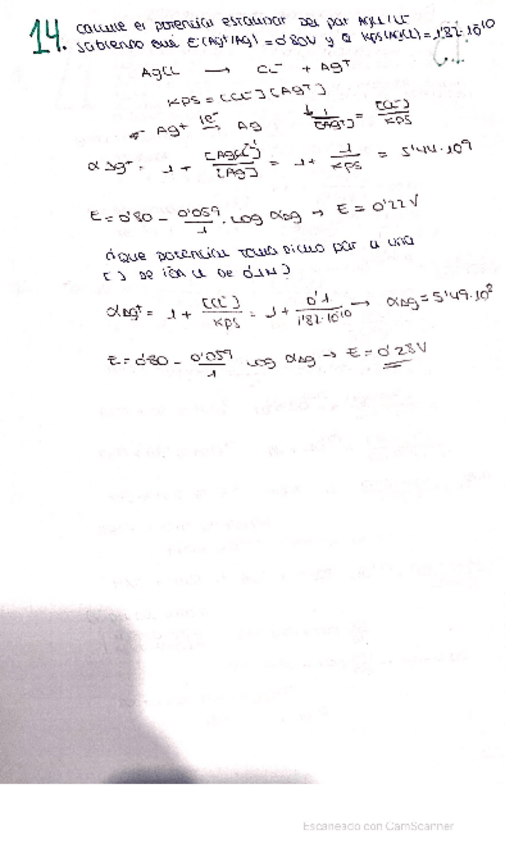 14. Calcule el potencial estandar del par AgCl/Cl⁻
sabiendo que E(Ag⁺/Ag) = 0'80V y a Kps(AgCl) = 1'82·10⁻¹⁰
AgCl → Cl⁻ + Ag⁺
Kps = [Cl⁻][Ag⁺]
Ag⁺ 1e⁻ ⇌ Ag 1/[Ag⁺] = [Cl⁻]/Kps
α Ag⁺ = 1 + [AgCl]/[Ag] = 1 + 1/Kps = 5'44·10⁹
E = 0'80 - 0'059/1 · log αAg → E = 0'22V
¿que potencial tendra dicho par a una
[ ] de ión Cl de 0'1N?
αAg⁺ = 1 + [Cl⁻]/Kps = 1 + 0'1/1'82·10⁻¹⁰ → αAg = 5'49·10⁸
E = 0'80 - 0'059/1 log αAg → E = 0'28V
Escaneado con CamScanner